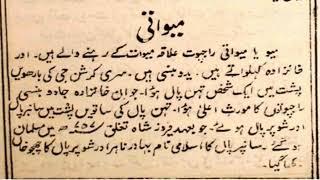 میواتی
میو یا میواتی راجپوت علاقہ میوات کے رہنے والے ہیں۔ اور
خانزادہ کہلواتے ہیں۔ یدوبنسی ہیں۔ سری کرشن جی کی بارھویں
پشت میں ایک شخص تہن پال ہوا۔ جو ان خانزادہ جادو بنسی
راجپوتوں کا مورث اعلیٰ ہوا۔ تہن پال کی ساتویں پشت میں سانپر پال
اور سوپر پال ہوئے۔ جو بعہد فیروز شاہ تغلق میں مسلمان
ہو گئے۔ سانپر پال کا اسلامی نام بہادر ناہر اور سوپر پال کا چھجو خاں
رکھا گیا۔